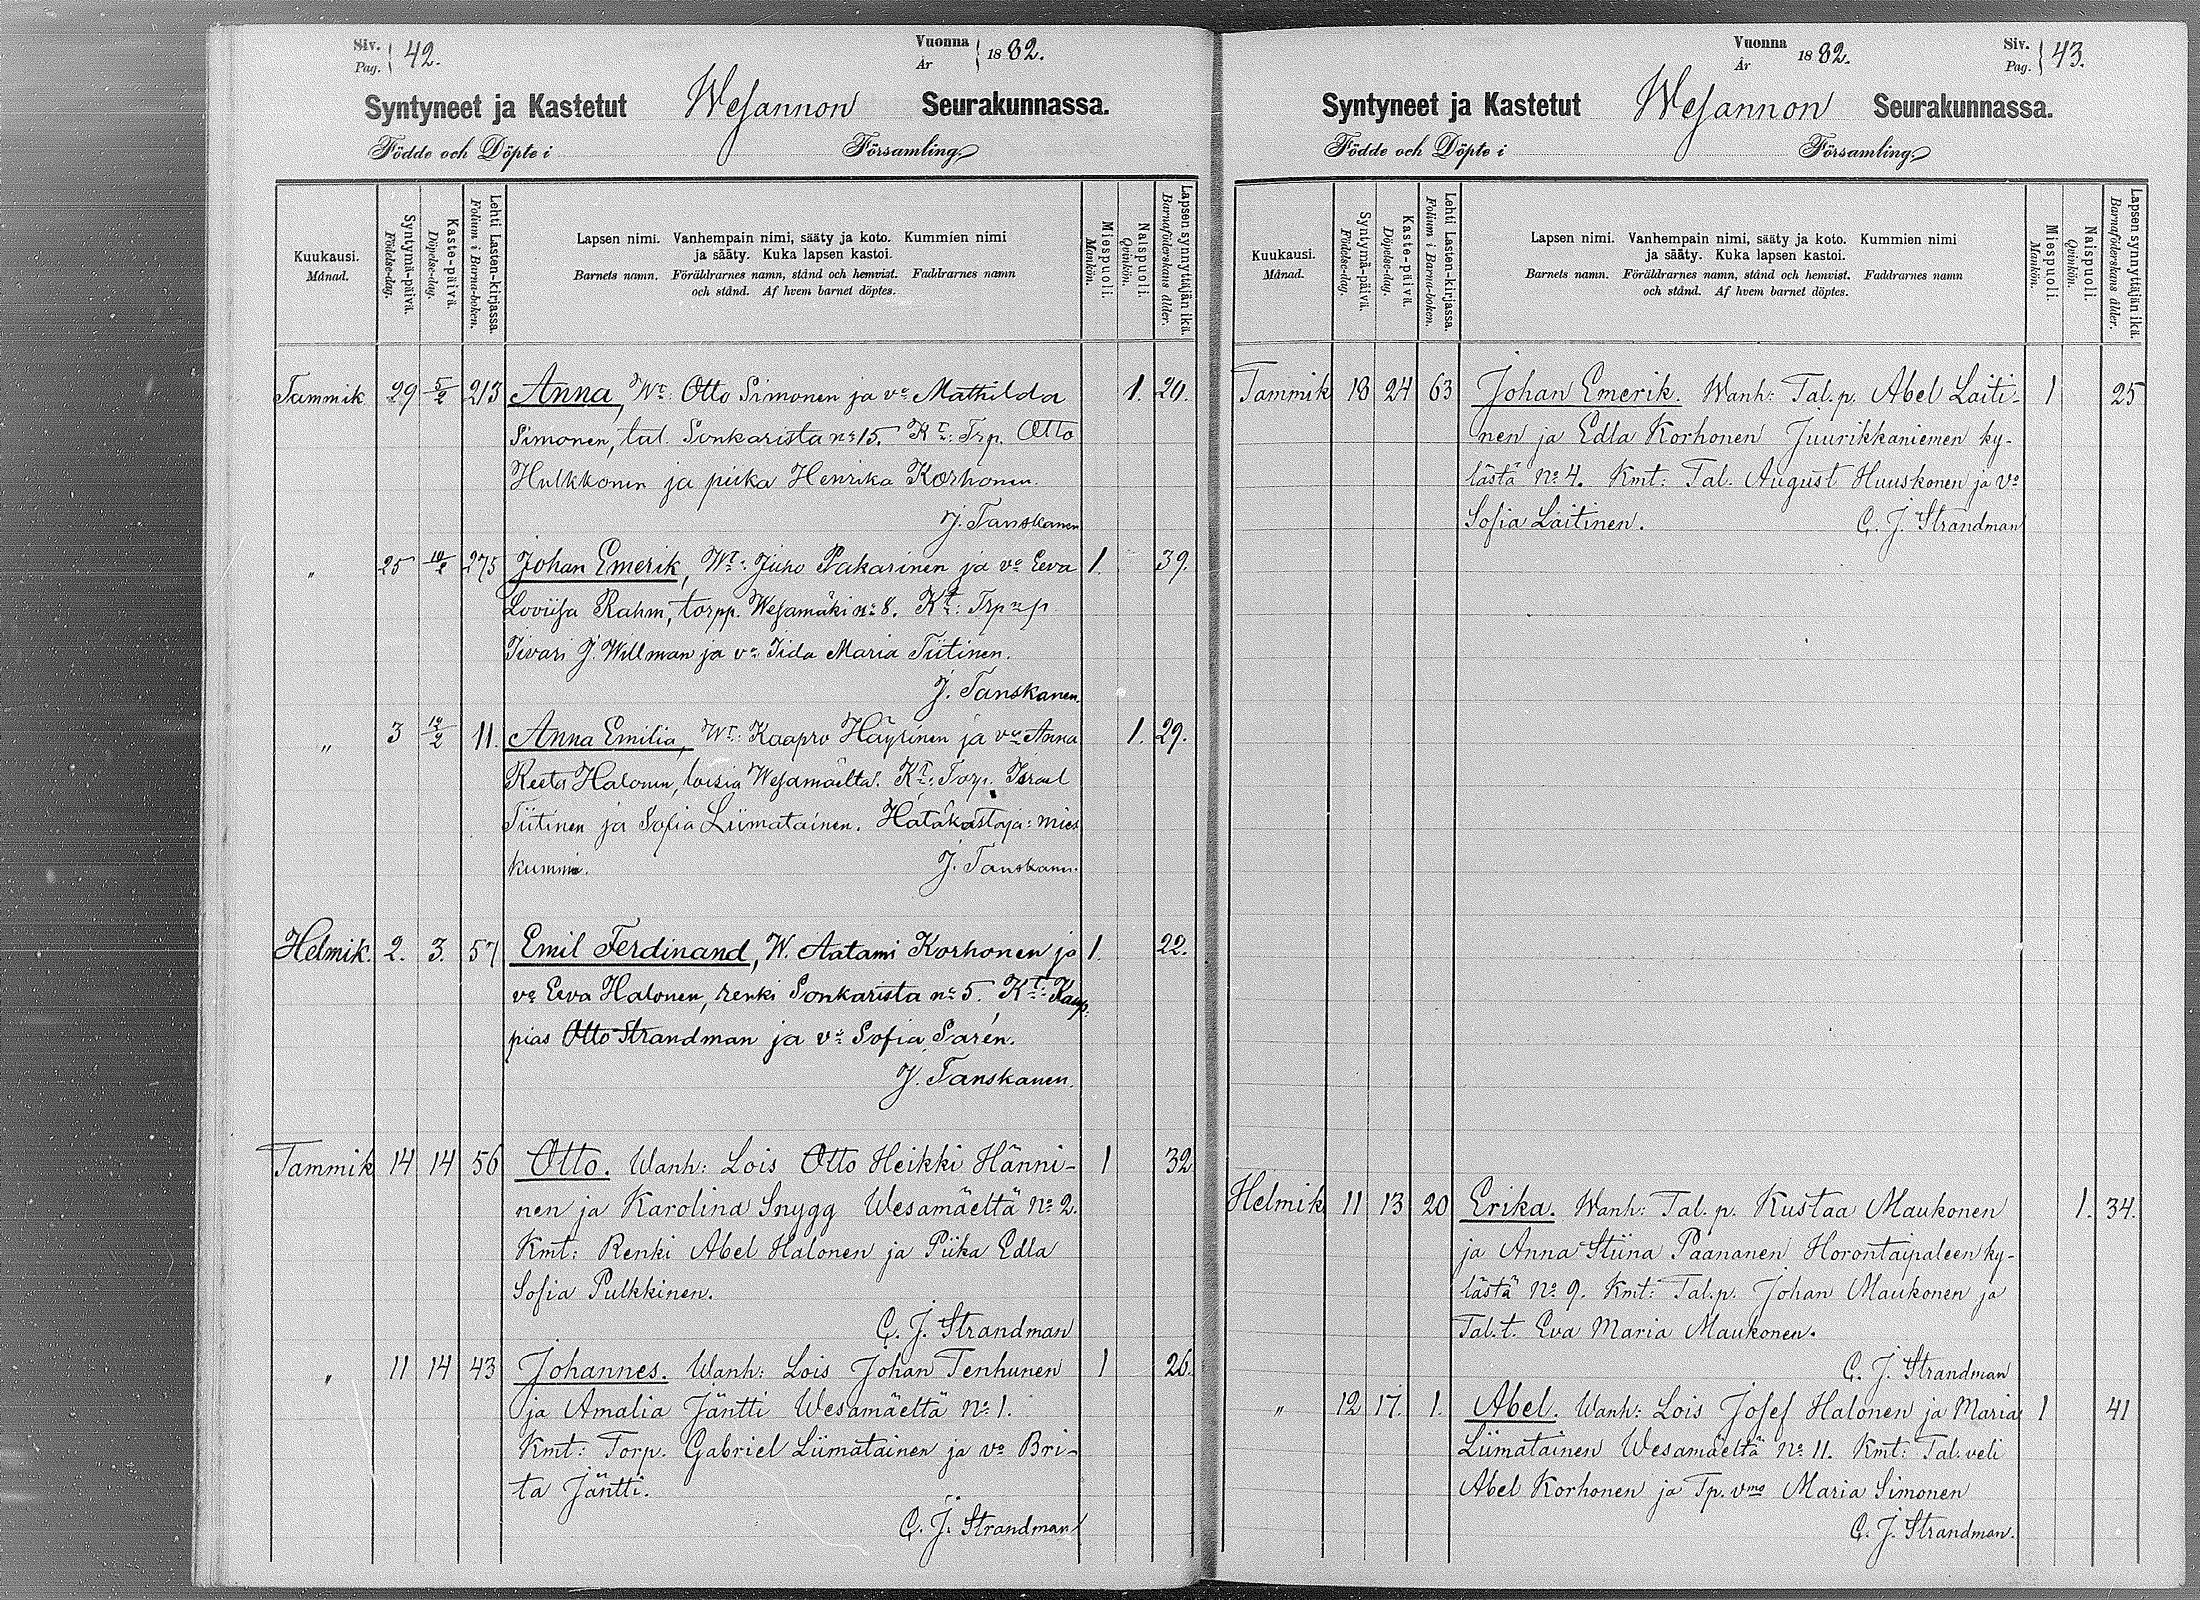 Siv. Pag. } 42.
Vuonna År } 1882.
Syntyneet ja Kastetut Wesannon Seurakunnassa.
Födde och Döpte i Församling.
Kuukausi. Månad.
Syntymä-päivä. Födelse-dag.
Kaste-päivä. Döpelse-dag.
Lehti Lasten-kirjassa. Folium i Barna-boken.
Lapsen nimi. Vanhempain nimi, sääty ja koto. Kummien nimi
ja sääty. Kuka lapsen kastoi.
Barnets namn. Föräldrarnes namn, stånd och hemvist. Faddrarnes namn
och stånd. Af hvem barnet döptes.
Miespuoli. Mankön.
Naispuoli. Qvinkön.
Lapsen synnyttäjän ikä. Barnaföderskans ålder.
Tammik 29 5/2 213 Anna, Wt: Otto Simonen ja vo Mathilda 1. 20.
Simonen, tal. Sonkarista no 15. Kt: Trp. Otto
Hulkkonen ja piika Henrika Korhonen.
J. Tanskanen
" 25 10/2 275 Johan Emerik, Wt: Juho Pakarinen ja vo Eeva 1. 39.
Loviisa Rahm, torpp. Wesamäki no 8. Kt: Trp
Iivari J. Willman ja vo Iida Maria Tiitinen.
J. Tanskanen.
" 3 12/2 11. Anna Emilia, Wt: Kaapro Häyrinen ja vo Anna 1. 29.
Reeta Halonen, loisia Wesamäeltä. Kt: Torp. Israel
Tiitinen ja Sofia Liimatainen. Hätäkastaja: mies
kummi. J. Tanskanen.
Helmik. 2. 3. 57 Emil Ferdinand, W. Aatami Korhonen ja 1. 22.
vo Eeva Halonen, renki Sonkarista no 5. Kt: Kaup-
pias Otto Strandman ja vo Sofia Sarén.
J. Tanskanen.
Tammik 14 14 56 Otto. Wanh: Lois Otto Heikki Hänni- 1 32
nen ja Karolina Snygg Wesamäeltä No 2.
Kmt: Renki Abel Halonen ja Piika Edla
Sofia Pulkkinen.
C. J. Strandman
" 11 14 43 Johannes. Wanh: Lois Johan Tenhunen 1 26.
ja Amalia Jäntti Wesamäeltä No 1.
Kmt: Torp. Gabriel Liimatainen ja vo Bri-
ta Jäntti.
C. J. Strandman
Vuonna År 1882.
Siv. Pag. } 43.
Syntyneet ja Kastetut Wesannon Seurakunnassa.
Födde och Döpte i Församling.
Kuukausi. Månad.
Syntymä-päivä. Födelse-dag.
Kaste-päivä. Döpelse-dag.
Lehti Lasten-kirjassa. Folium i Barna-boken.
Lapsen nimi. Vanhempain nimi, sääty ja koto. Kummien nimi
ja sääty. Kuka lapsen kastoi.
Barnets namn. Föräldrarnes namn, stånd och hemvist. Faddrarnes namn
och stånd. Af hvem barnet döptes.
Miespuoli. Mankön.
Naispuoli. Qvinkön.
Lapsen synnyttäjän ikä. Barnaföderskans ålder.
Tammik 18 24 63 Johan Emerik. Wanh: Tal.p. Abel Laiti- 1 25
nen ja Edla Korhonen Juurikkaniemen ky-
lästä No 4. Kmt: Tal. August Huuskonen ja Vo
Sofia Laitinen. C. J. Strandman
Helmik 11 13 20 Erika. Wanh: Tal.p. Kustaa Maukonen 1. 34.
ja Anna Stiina Paananen Horontaipaleen ky-
lästä No 9. Kmt: Tal.p. Johan Maukonen ja
Tal.t. Eva Maria Maukonen.
C. J. Strandman
" 12 17. 1. Abel. Wanh: Lois Josef Halonen ja Maria 1 41
Liimatainen Wesamäeltä No 11. Kmt: Tal.veli
Abel Korhonen ja Tp. vmo Maria Simonen
C. J. Strandman.